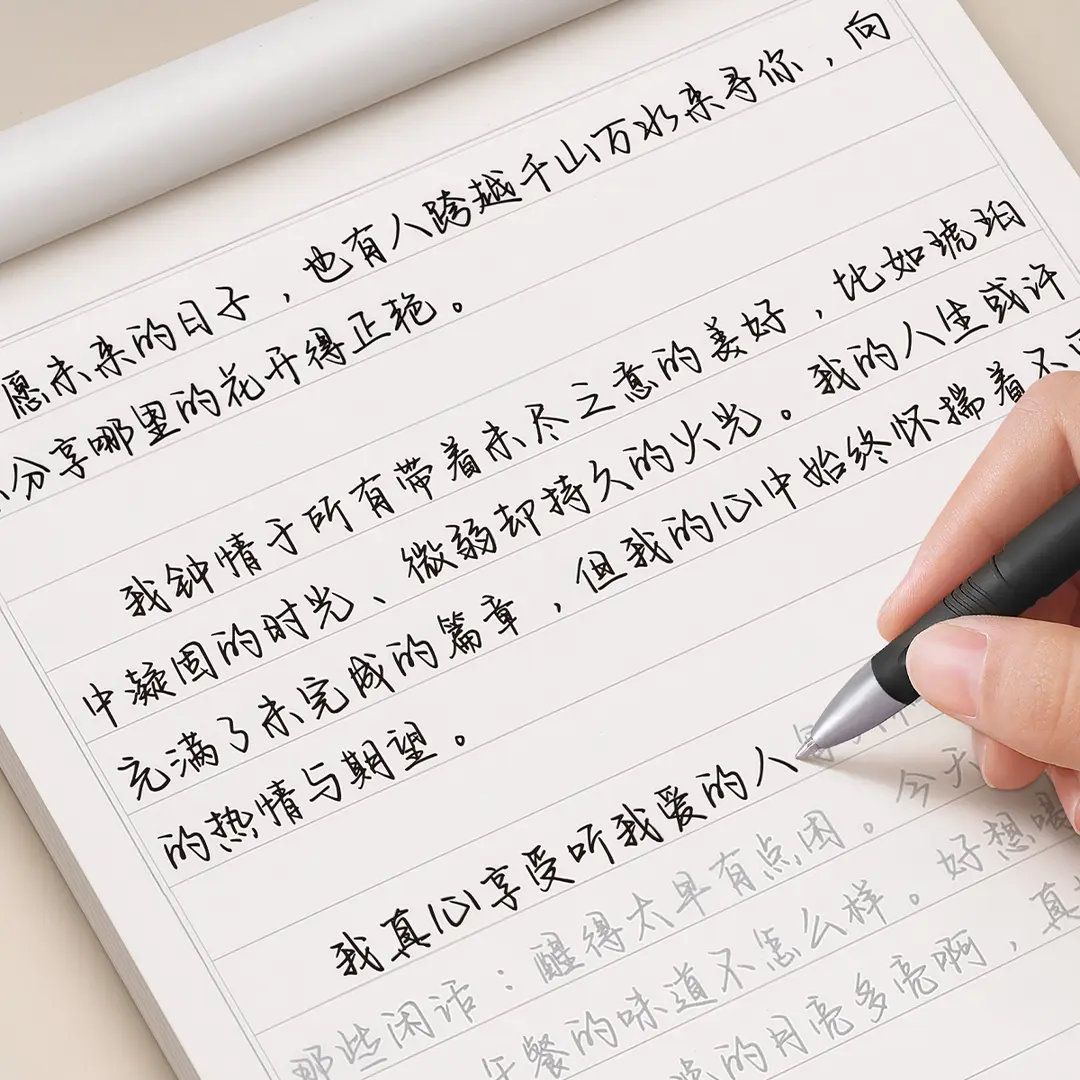 愿未来的日子，也有人跨越千山万水来寻你，向
分享哪里的花开得正艳。
我钟情于所有带着未尽之意的美好，比如琥珀
中凝固的时光、微弱却持久的火光。我的人生或许
充满了未完成的篇章，但我的心中始终怀揣着不
的热情与期望。
我真心享受听我爱的人
那些闲话：醒得太早有点困。今天
午餐的味道不怎么样。好想喝
的月亮多亮啊，真